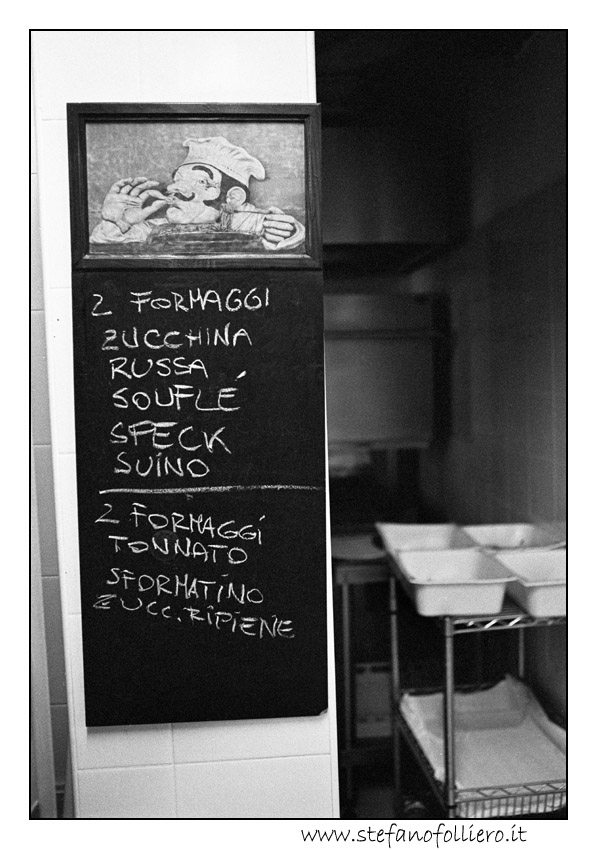 2 FORMAGGI
ZUCCHINA
RUSSA
SOUFLÉ
SPECK
SUINO
2 FORMAGGI
TONNATO
SFORMATINO
ZUCC. RIPIENE
www.stefanofolliero.it